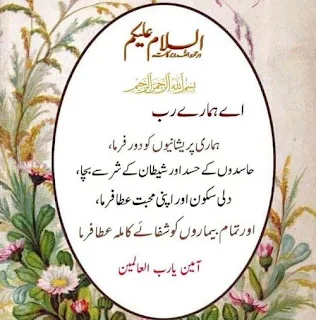 السلام علیکم
ورحمۃ اللہ وبرکاتہ
بِسْمِ اللهِ الرَّحْمٰنِ الرَّحِيْمِ
اے ہمارے رب
ہماری پریشانیوں کو دور فرما،
حاسدوں کے حسد اور شیطان کے شر سے بچا،
دلی سکون اور اپنی محبت عطا فرما،
اور تمام بیماروں کو شفائے کاملہ عطا فرما
آمین یارب العالمین